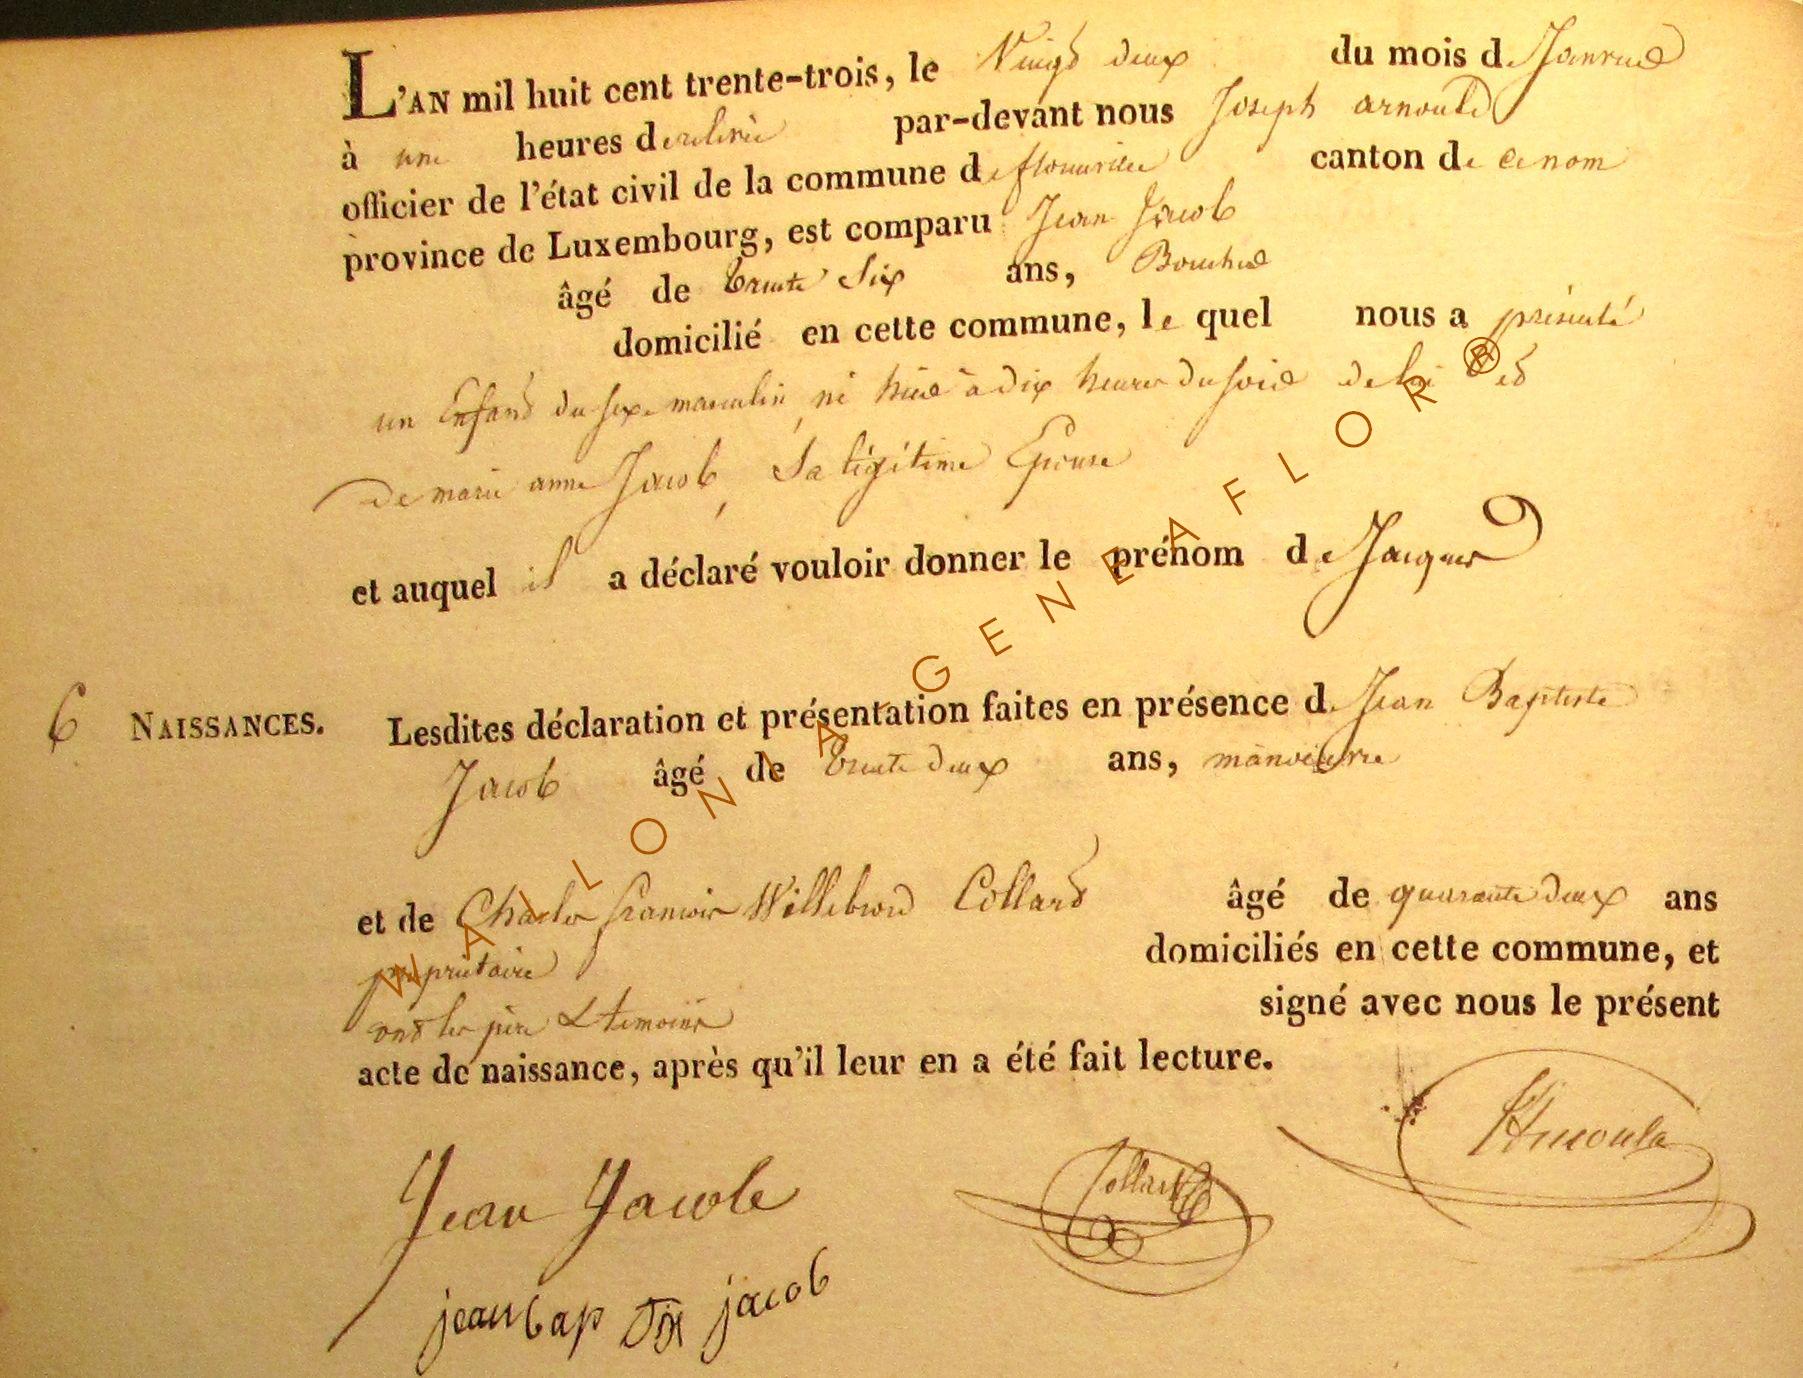 L'AN mil huit cent trente-trois, le Vingt deux du mois de Janvier
à une heures de relevée par-devant nous Joseph arnould
officier de l'état civil de la commune de florenville canton de ce nom
province de Luxembourg, est comparu Jean Jacob
âgé de trente Six ans, Boucher
domicilié en cette commune, le quel nous a présenté
un Enfant du sexe masculin, né hier à dix heures du soir de lui et
de marie anne Jacob, Sa légitime Epouse
et auquel il a déclaré vouloir donner le prénom de Jacques
6 NAISSANCES. Lesdites déclaration et présentation faites en présence de Jean Baptiste
Jacob âgé de trente deux ans, manoeuvre
et de Charles francois Willebrord Collard âgé de quarante deux ans
propriétaire domiciliés en cette commune, et
ont les père & temoins signé avec nous le présent
acte de naissance, après qu'il leur en a été fait lecture.
Jean Jacob
Collard
Arnould
jean bap jacob
WALLONIA GENEAFLOR ®